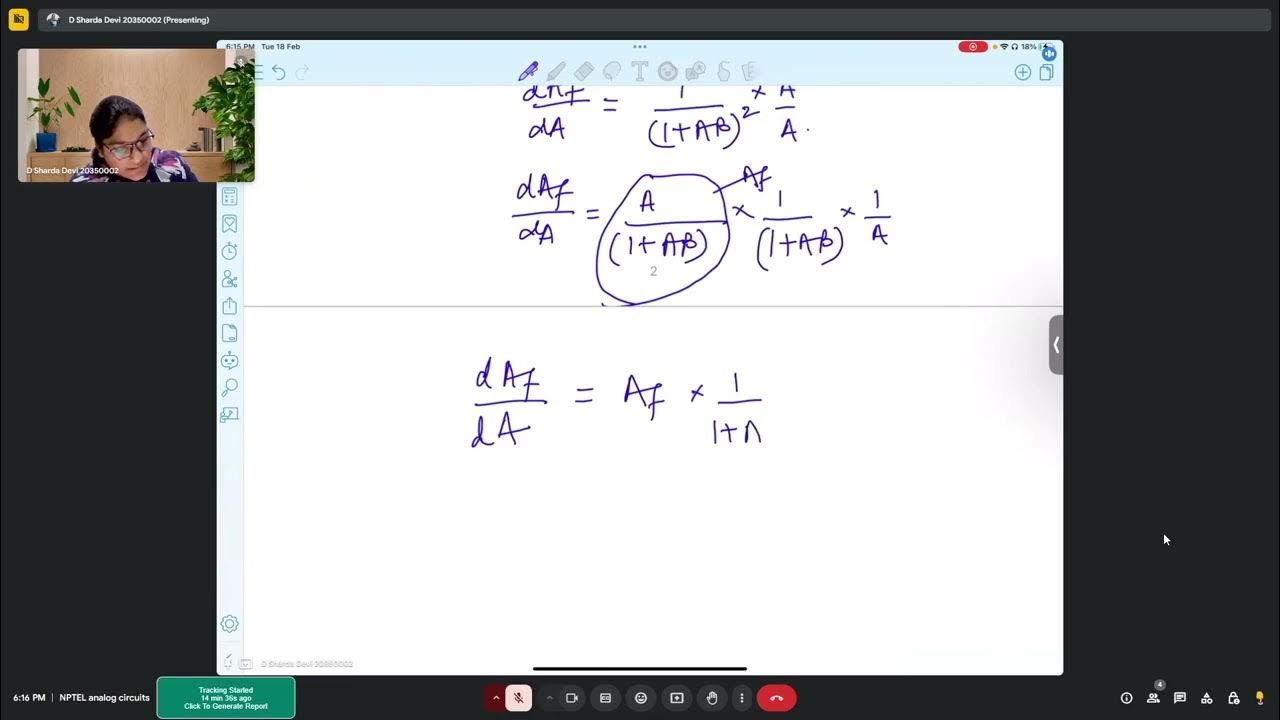 D Sharda Devi 20350002 (Presenting)
6:15 PM Tue 18 Feb
18%
D Sharda Devi 20350002
dAf/dA = 1/(1+AB)² × A/A.
dAf/dA = A/(1+AB) × 1/(1+AB) × 1/A
Af
2
dAf/dA = Af × 1/1+A
D Sharda Devi 20350002
6:16 PM | NPTEL analog circuits
Tracking Started
14 min 36s ago
Click To Generate Report
4